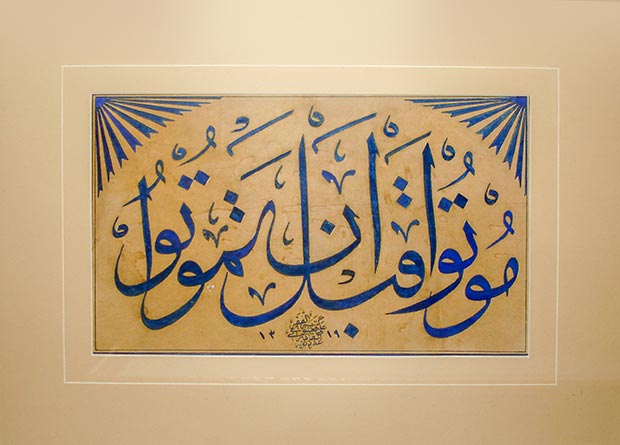 موتوا قبل ان تموتوا
١٣١٩